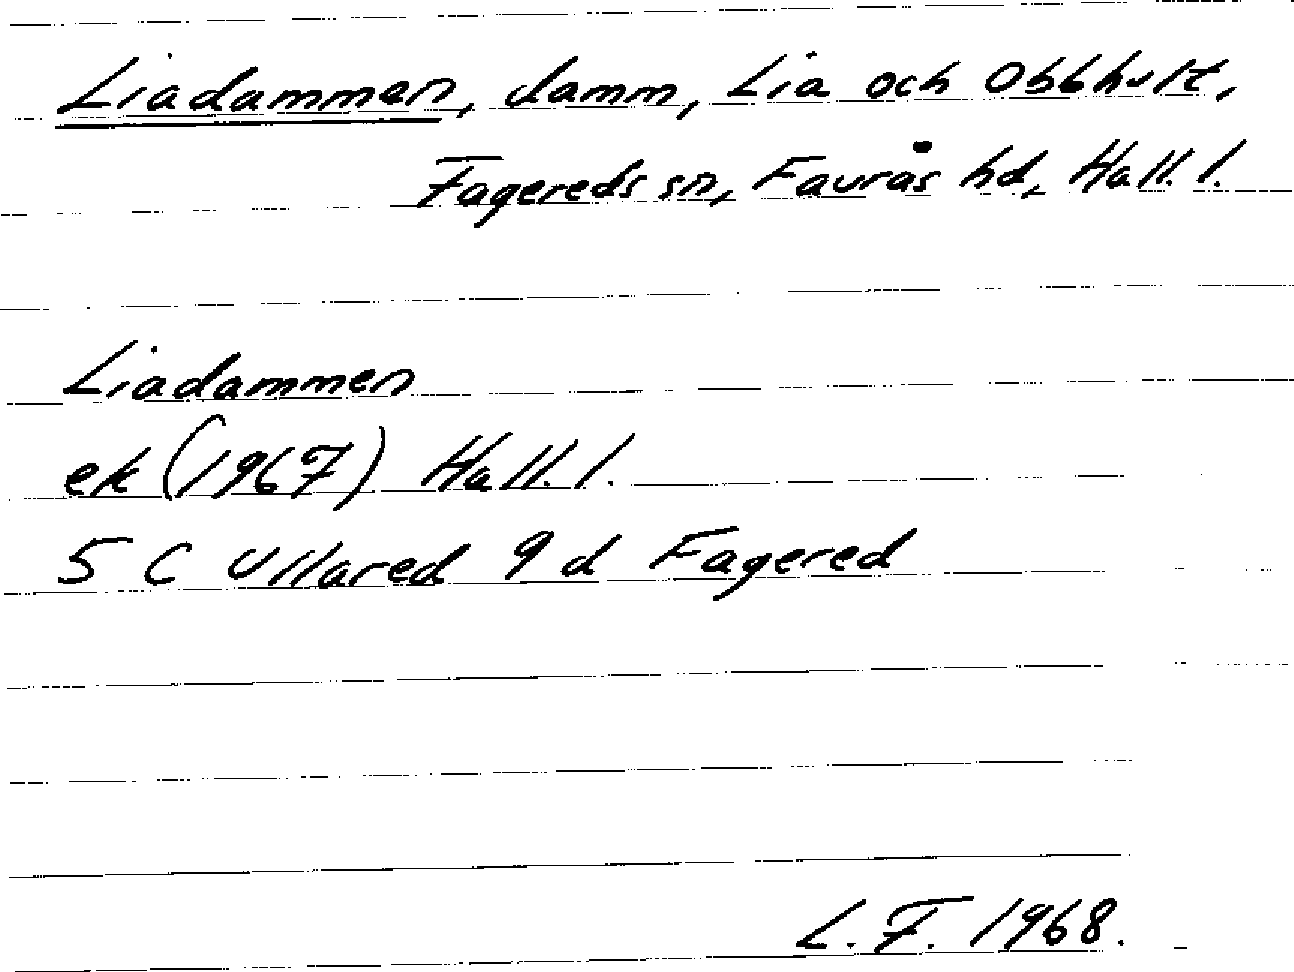 Liadammen, damm, Lia och Obbhult,
Fagereds sn, Faurås hd, Hall. l.
Liadammen
ek (1967) Hall. l.
5 C Ullared 9 d Fagered
L. F. 1968.